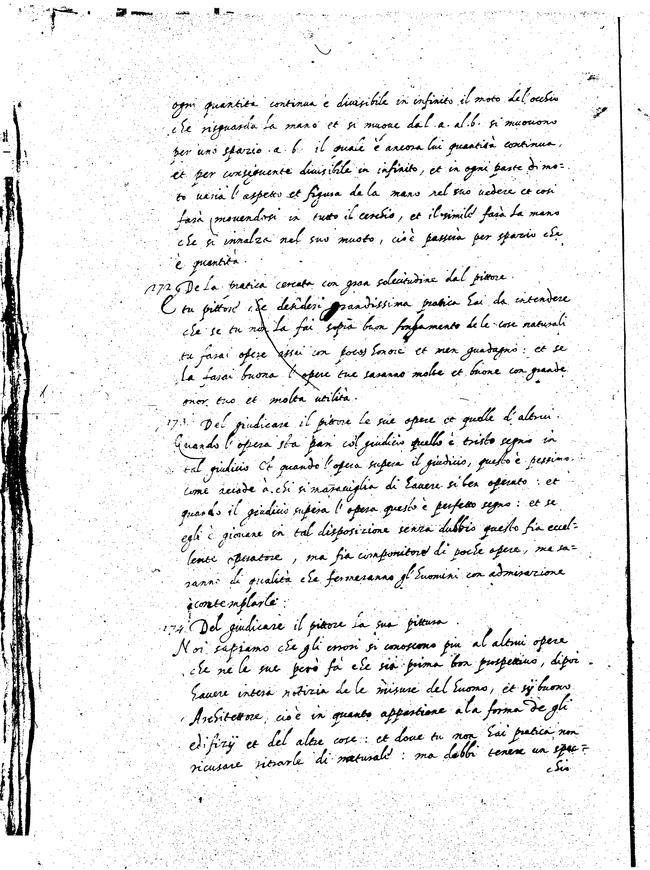 ogni quantita continua è divisibile in infinito il moto del'occhio
che risguarda la mano et si muove dal .a. al .b. si muovono
per uno spazio .a. b. il quale è ancora lui quantità continua,
et per conseguente divisibile in infinito, et in ogni parte di mo=
to varia l'aspetto et figura de la mano nel suo vedere et così
farà movendosi in tutto il cerchio, et il simile farà la mano
che si innalza nel suo muoto, cioè passerà per spazio che
è quantità.
172 De la pratica cercata con gran solecitudine dal pittore.
E tu pittore che desideri grandissima pratica hai da intendere
che se tu non la fai sopra buon fondamento de le cose naturali
tu farai opere assai con poco honore et men guadagno: et se
la farai buona l'opere tue saranno molte et buone con grande
onor tuo et molta utilità.
173. Del giudicare il pittore le sue opere et quelle d'altrui.
Quando l'opera sta pari col giudicio quello è tristo segno in
tal giudicio Et quando l'opera supera il giudicio, questo è pessimo.
come accade à chi si maraviglia di havere si ben operato: et
quando il giudicio supera l'opera questo è perfetto segno: et se
egli è giovane in tal disposizione senza dubbio questo fia eccel=
lente operatore, ma fia componitore di poche opere, ma sa=
ranno di qualità che fermeranno gl'huomini con admirazione
à contemplarle:
174 Del giudicare il pittore la sua pittura.
Noi sapiamo che gli errori si conoscono piu al altrui opere
che ne le sue però fa che sia prima bon prospettivo, dipoi
havere intera notizia de le misure del huomo, et sÿ buono
Architettore, cioè in quanto appartiene a la forma de gli
edifizÿ et del altre cose: et dove tu non hai pratica non
ricusare ritrarle di naturale: ma debbi tenere un spec=
chio